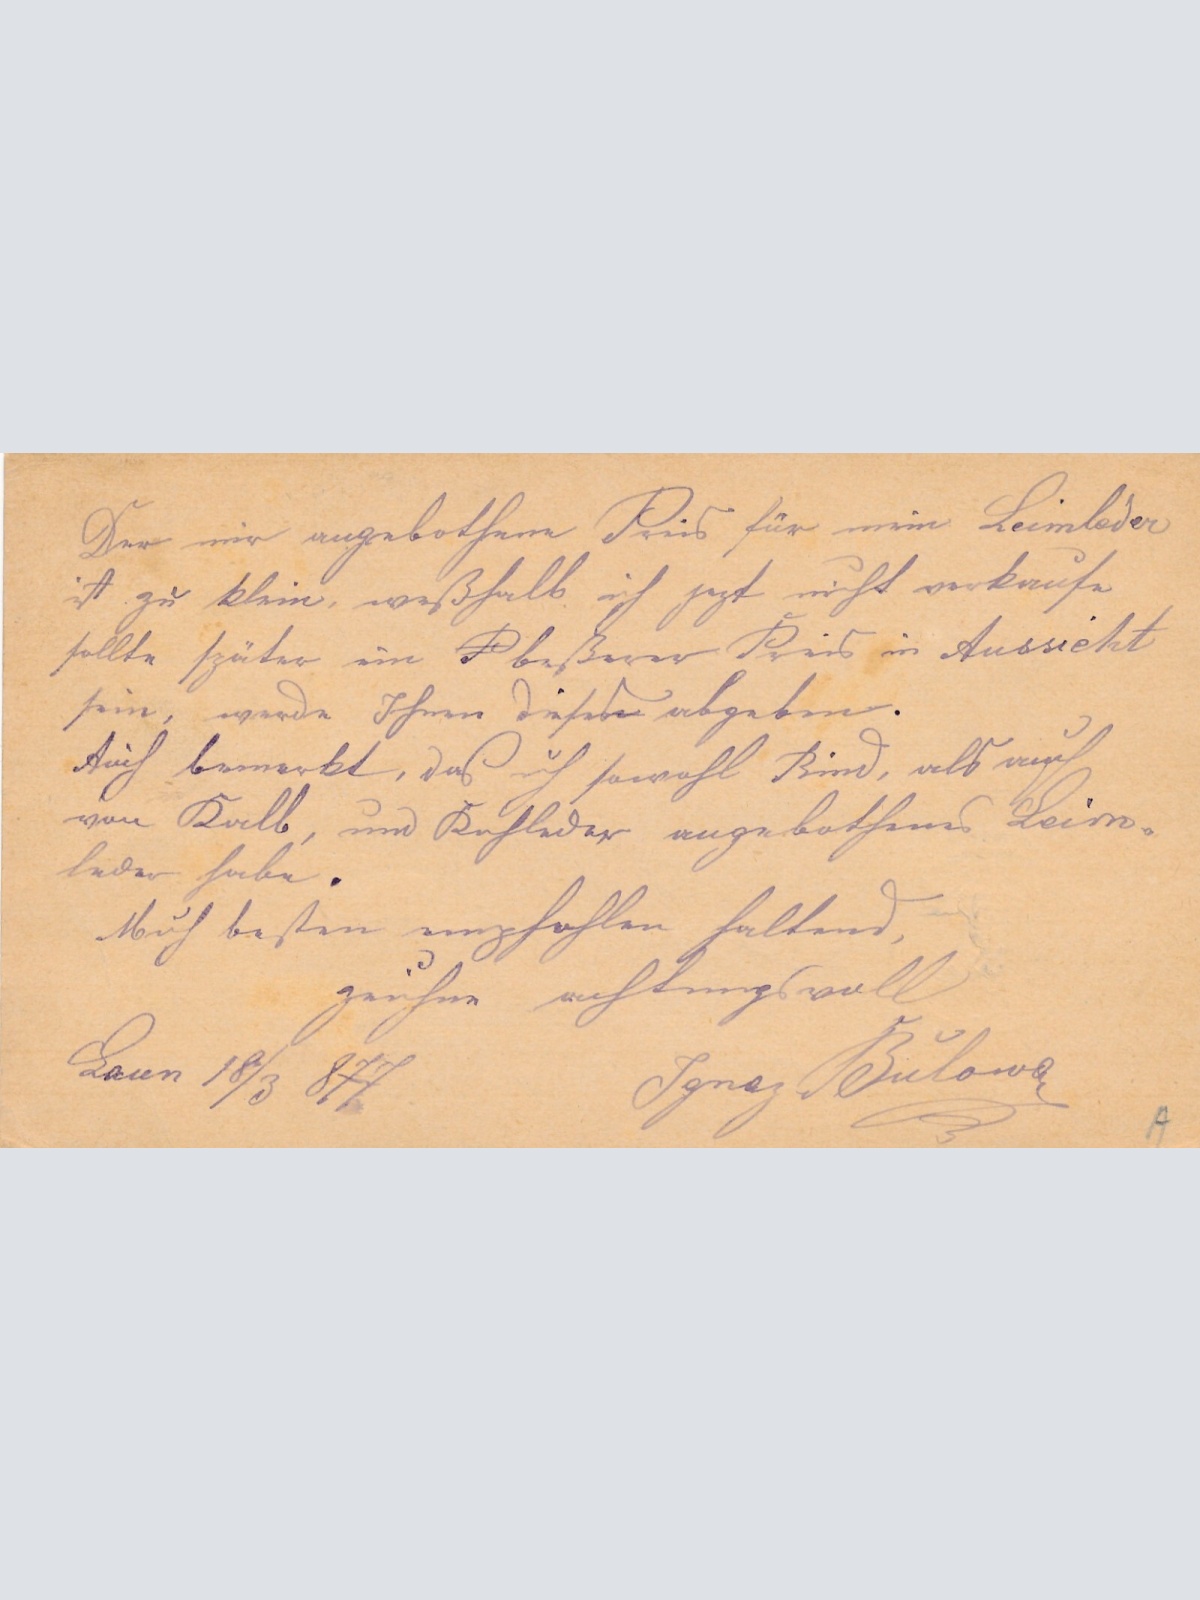 Der mir angebothene Preis für mein Leimleder
ist zu klein, weßhalb ich jezt nicht verkaufe
sollte später ein beßerer Preis in Aussicht
sein, werde Ihnen dieses abgeben.
Auch bemerkt, das ich sowohl Rind, als auch
von Kalb, und Kuhleder angebothenes Leim-
leder habe.
Mich besten empfohlen haltend,
zeichne achtungsvoll
Laun 18/3 877
Ignaz Bulowa
A